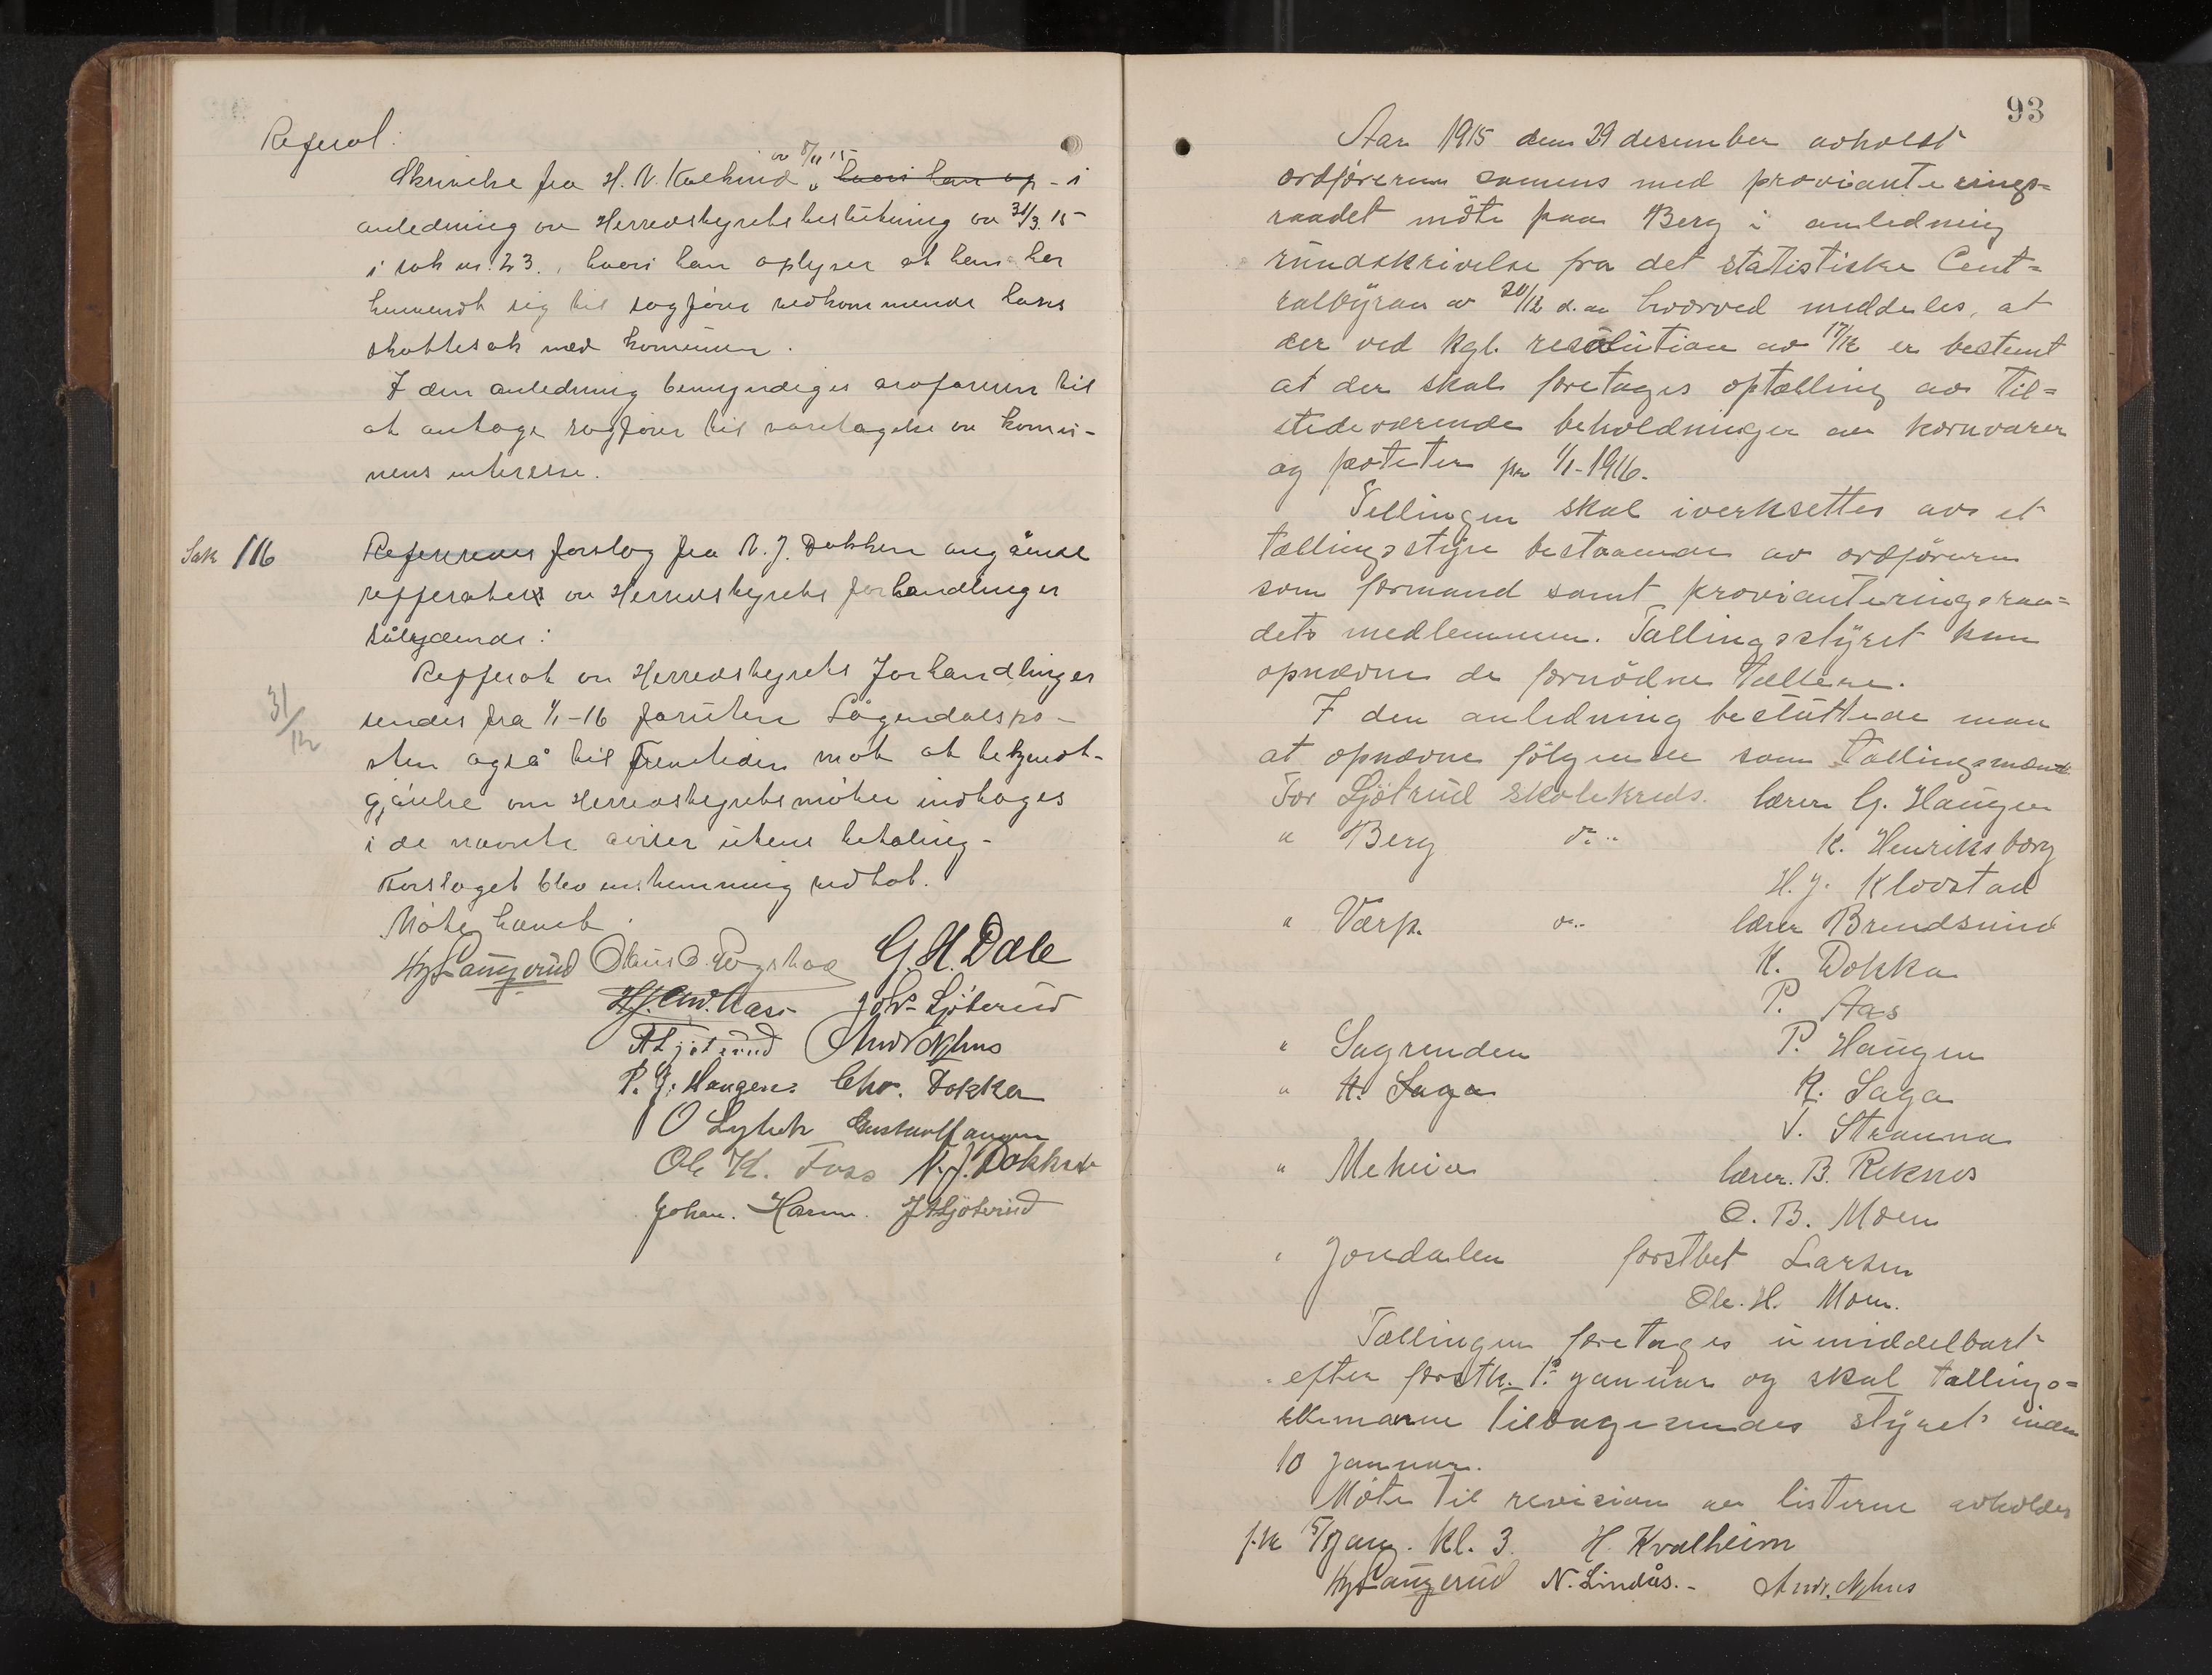 Referat:
av 8/11 15
Skrivelse fra H. N. Kvelrud, hvori han op - i
anledning av Herredstyrets beslutning av 31/3. 15
i sak nr. 23., hvori han oplyser at han har
henvendt sig til sagfører vedkommende hans
skattesak med komunen.
I den anledning bemyndiges ordføreren til
at antage sagfører til varetagelse av komu-
nens interesse.
Sak 116
Refereres forslag fra N. J. Dokken angående
refferater av Herredstyrets forhandlinger
sålydende:
Refferat av Herredstyrets Forhandlinger
31/12
sendes fra 1/1-16 foruten Lågendalspo-
sten også til Fremtiden mot at bekjendt-
gjørelse om Herredstyretsmøter indtages
i de nævnte aviser uten betaling -
Forslaget blev enstemmig vedtat.
Møte hævet.
G. H. Dale
Joh. Ljøterud
And. Nyhus
P. J. Haugen. Chr. Dokka
O Lyhek Gustav Haugen
Ole K. Foss N. J. Dokken
Johan. Hamm. J Ljøterud
93
Aar 1915 den 29 desember avholdt
ordføreren samens med provianterings=
raadet møte paa Berg i anledning
rundskrivelse fra det statistiske Cent=
ralbyraa av 20/12 d. aa hvorved meddeles, at
der ved kgl. resolution av 17/12 er bestemt
at der skal foretages optælling av til=
stedeværende beholdninger av kornvarer
og poteter pr 1/1-1916.
Tellingen skal iverksettes av et
tællingsstyre bestaaende av ordføreren
som formand samt provianteringsraa=
dets medlemmer. Tællingsstyret kan
opnævne de fornødne tællere.
I den anledning besluttede man
at opnævne følgende som tællingsmænd
For Ljøtrud skolekreds. lærer G. Haugen
" Berg do.. K. Henriksborg
H. J. Klovstad
" Værp. do.. lærer Brendsrud
K. Dokka
P. Aas
" Sagrenden P. Haugen
" H. Saga K. Saga
T. Stranna
" Meheia lærer. B. Reknes
O. B. Moen
" Jondalen forstbet Larsen
Ole. H. Moen.
Tællingen foretages umiddelbart
efter førstk. 1ste januar og skal tællings=
skemaene tilbagesendes styret inden
10 januar.
Møte til revision av listerne avholdes
f.k 15/ jan. Kl. 3. H. Kvalheim
N. Lindås. - Andr. Nyhus